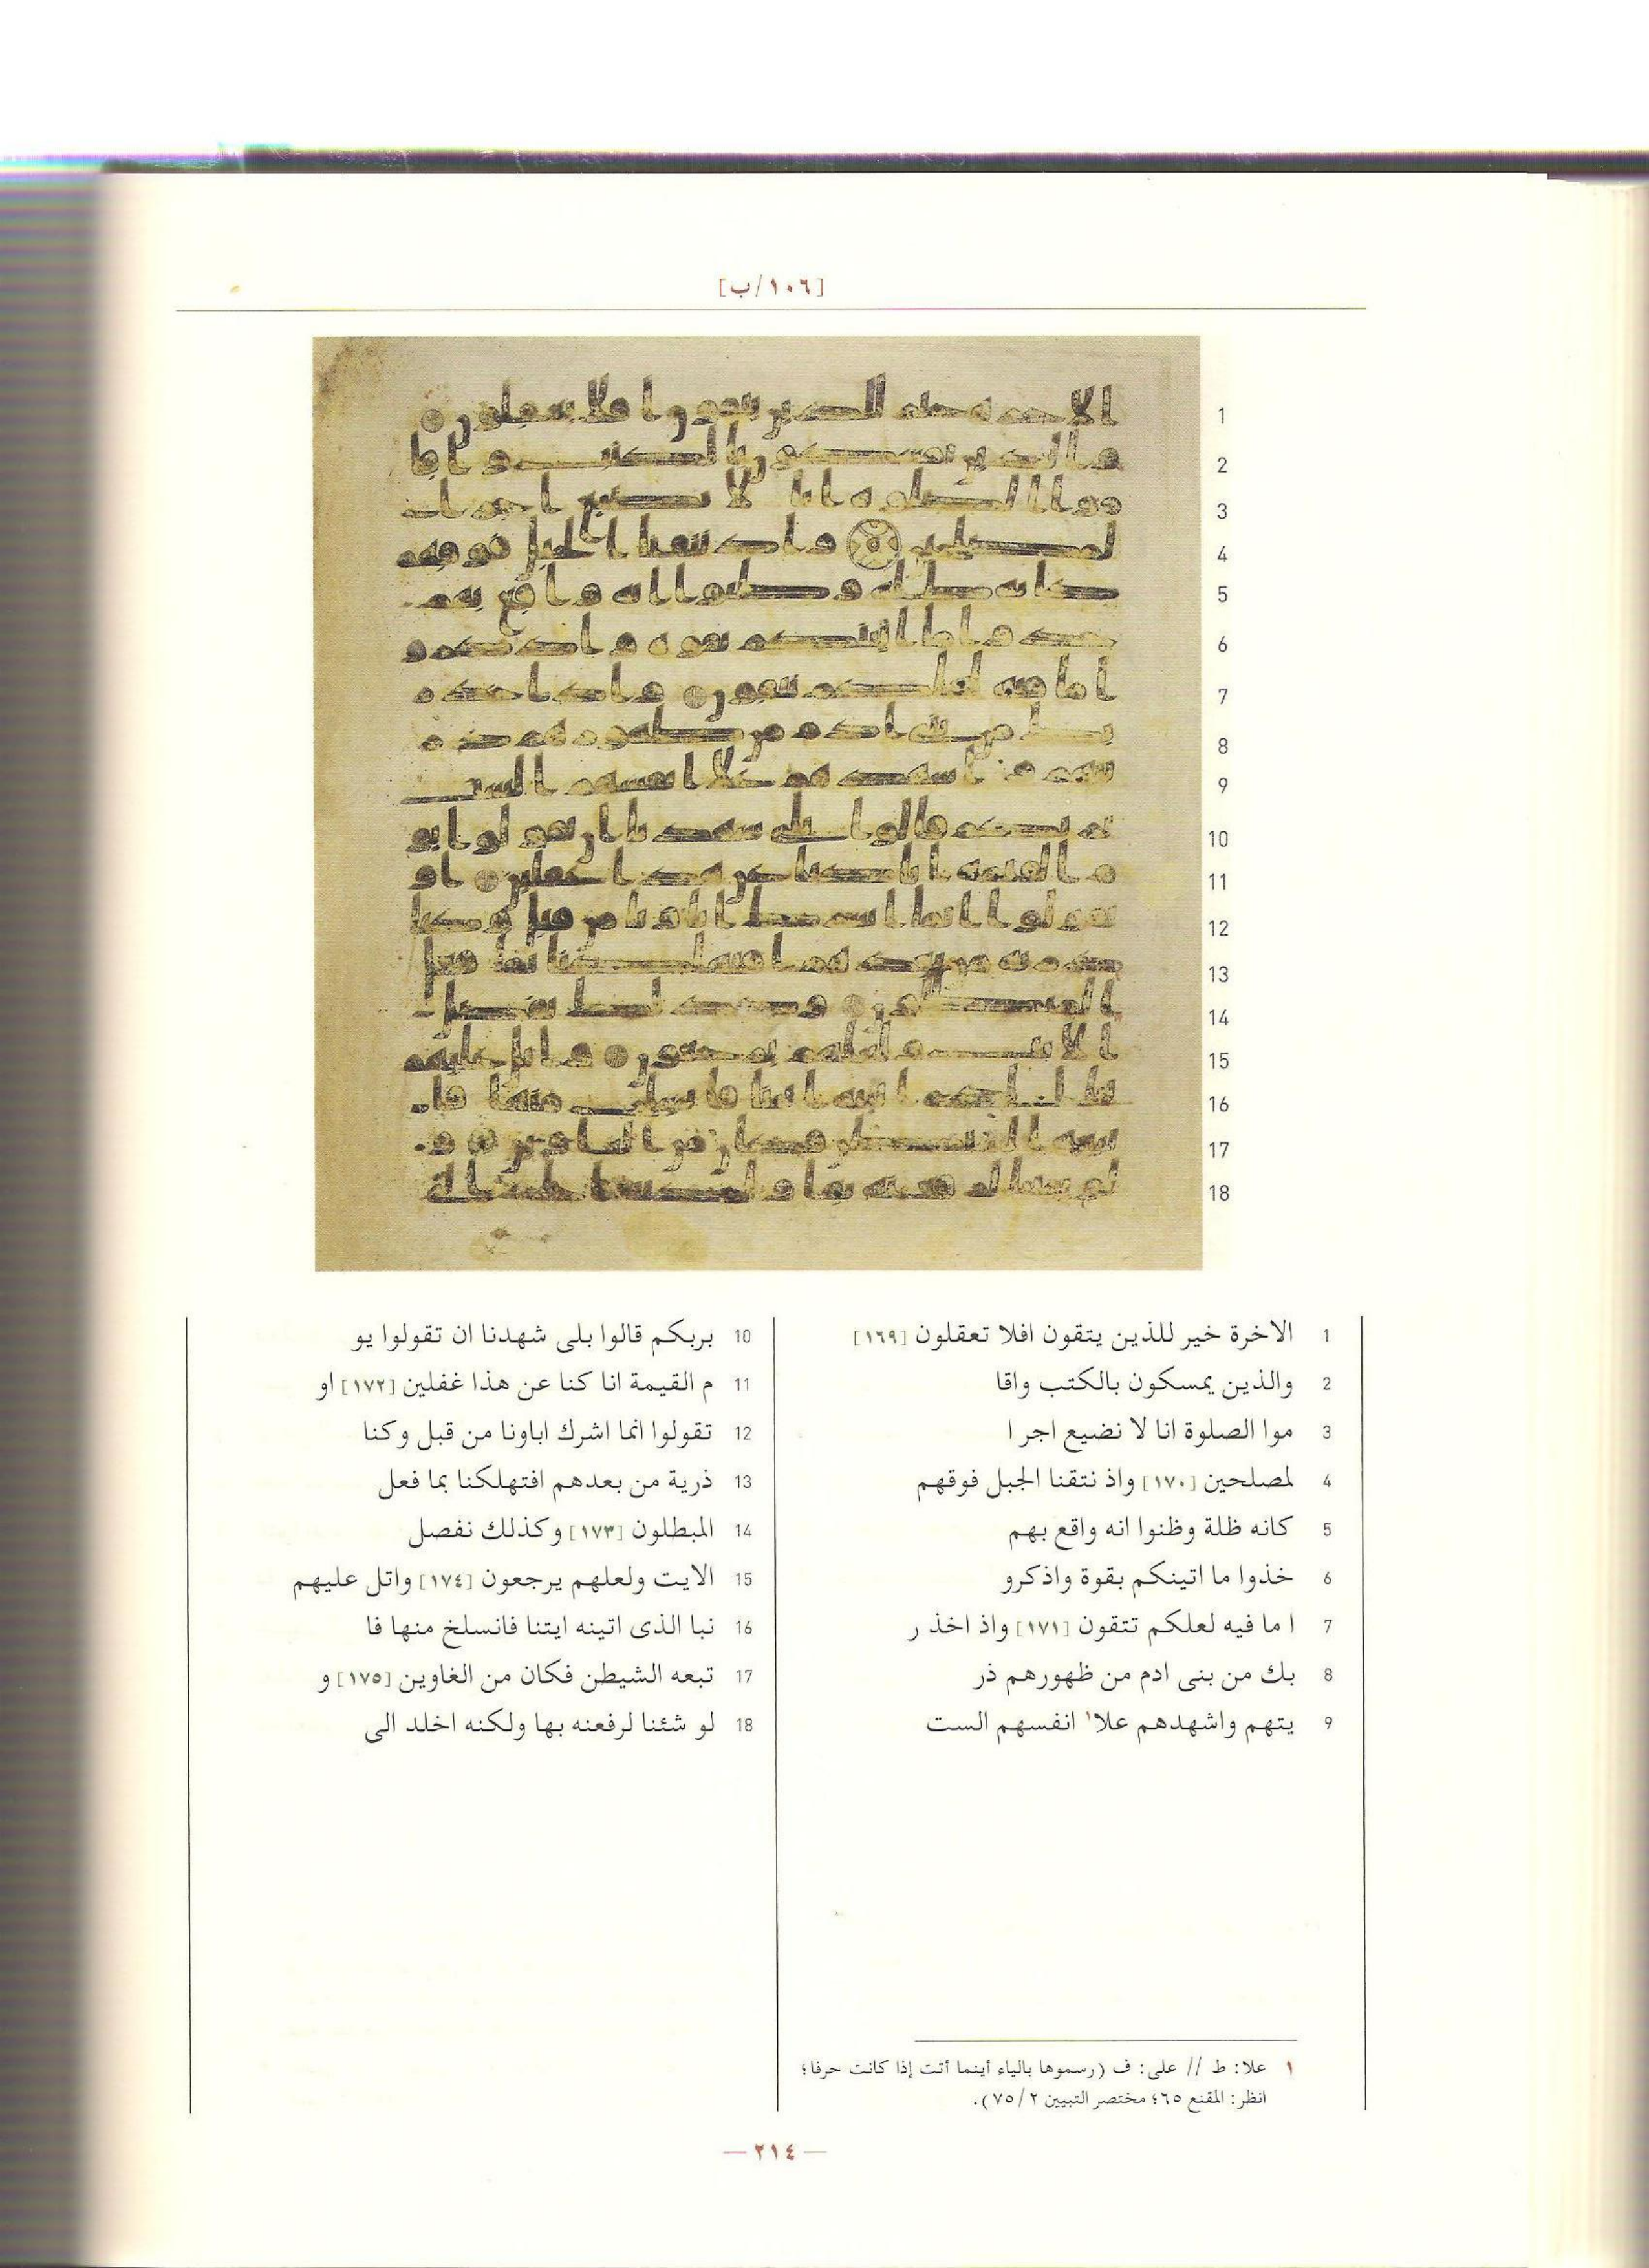 [١٠٦/ب]
1 الاخرة خير للذين يتقون افلا تعقلون [١٦٩]
2 والذين يمسكون بالكتب واقا
3 موا الصلوة انا لا نضيع اجر ا
4 لمصلحين [١٧٠] واذ نتقنا الجبل فوقهم
5 كانه ظلة وظنوا انه واقع بهم
6 خذوا ما اتينكم بقوة واذكرو
7 ا ما فيه لعلكم تتقون [١٧١] واذ اخذ ر
8 بك من بنى ادم من ظهورهم ذر
9 يتهم واشهدهم علا١ انفسهم الست
10 بربكم قالوا بلى شهدنا ان تقولوا يو
11 م القيمة انا كنا عن هذا غفلين [١٧٢] او
12 تقولوا انما اشرك اباونا من قبل وكنا
13 ذرية من بعدهم افتهلكنا بما فعل
14 المبطلون [١٧٣] وكذلك نفصل
15 الايت ولعلهم يرجعون [١٧٤] واتل عليهم
16 نبا الذى اتينه ايتنا فانسلخ منها فا
17 تبعه الشيطن فكان من الغاوين [١٧٥] و
18 لو شئنا لرفعنه بها ولكنه اخلد الى
١ علا: ط // على: ف (رسموها بالياء أينما أتت إذا كانت حرفا؛
انظر: المقنع ٦٥؛ مختصر التبيين ٧٥/٢).
— ٢١٤ —